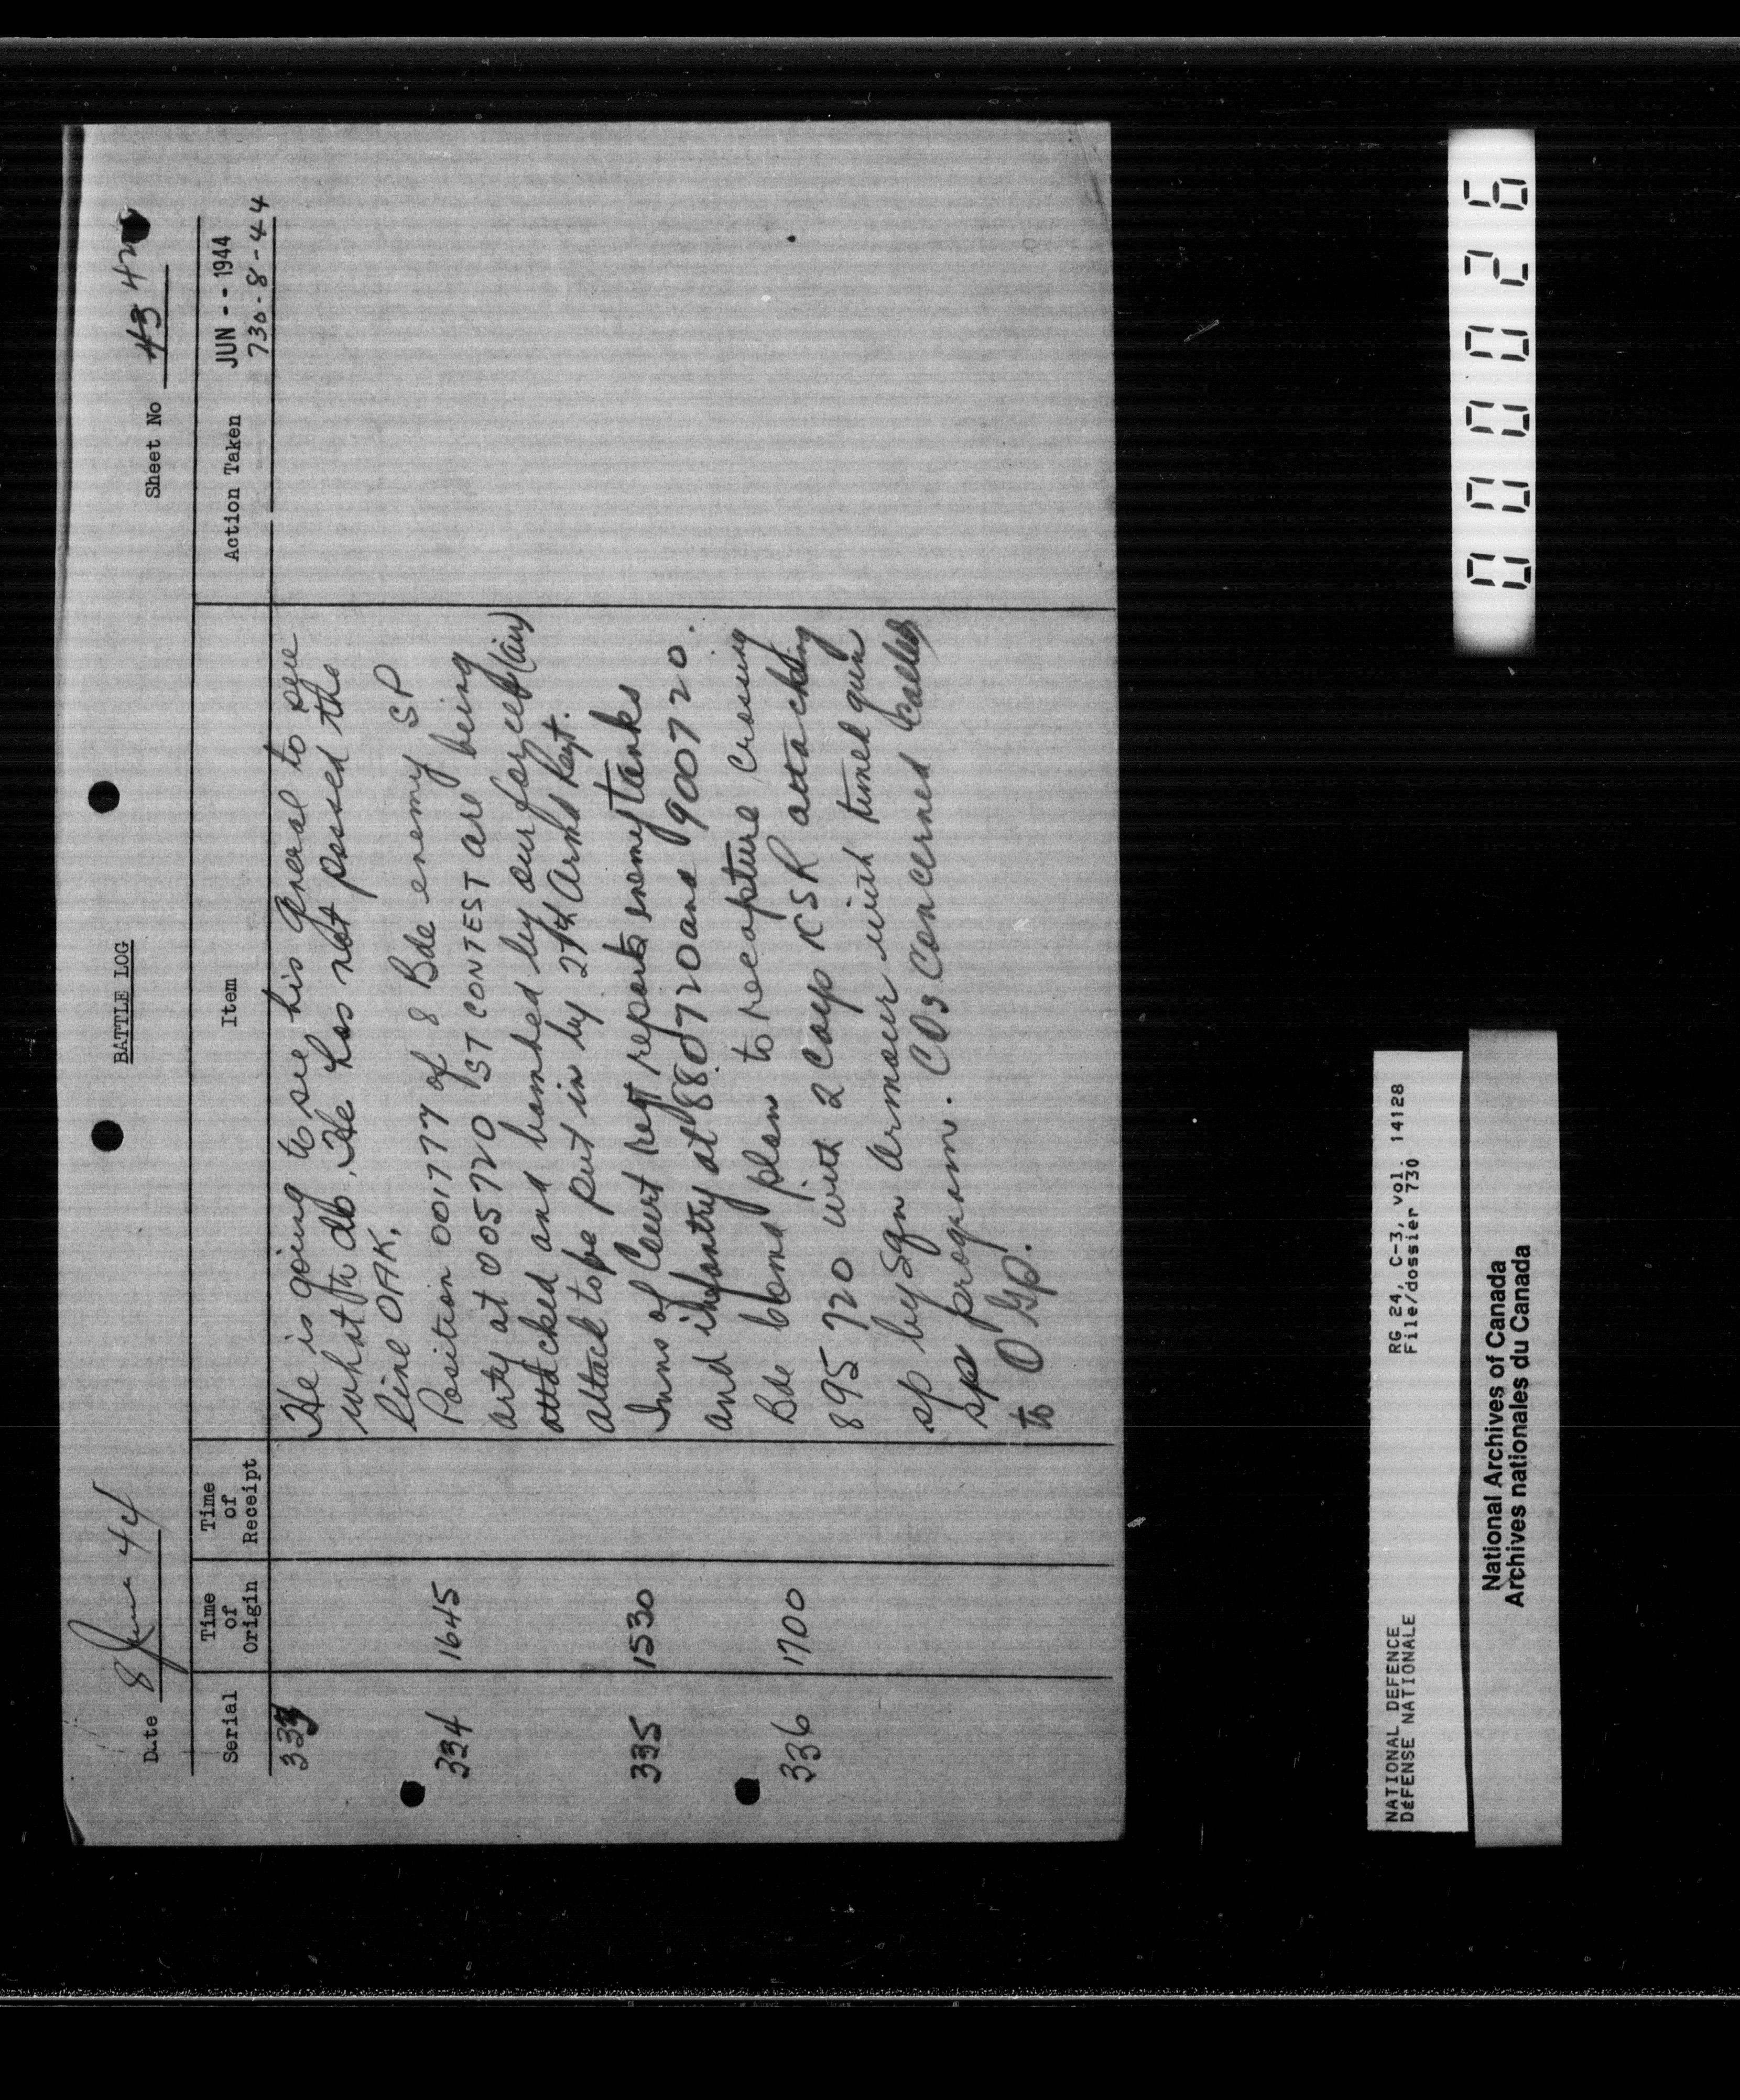 BATTLE LOG
Date 8 June 44
Sheet No 43 42
Serial
Time of Origin
Time of Receipt
Item
Action Taken
JUN - - 1944
730-8-44
333 He is going to see his general to see
what to do. He has not passed the
line OAK.
334 1645 Position 001777 of 8 Bde enemy SP
arty at 005720 ST CONTEST are being
attacked and bombed by our forces (air)
attack to be put in by 27th Armd Regt.
335 1530 Inns of Court regt reports enemy tanks
and infantry at 880720 and 900720.
336 1700 Bde Comd plan to recapture crossing
895720 with 2 Coys RSR attacking
sp by Sqn Armour with timed gun
sp program. COs concerned called
to O Gp.
NATIONAL DEFENCE
DéFENSE NATIONALE
RG 24, C-3, vol. 14128
File/dossier 730
National Archives of Canada
Archives nationales du Canada
000026